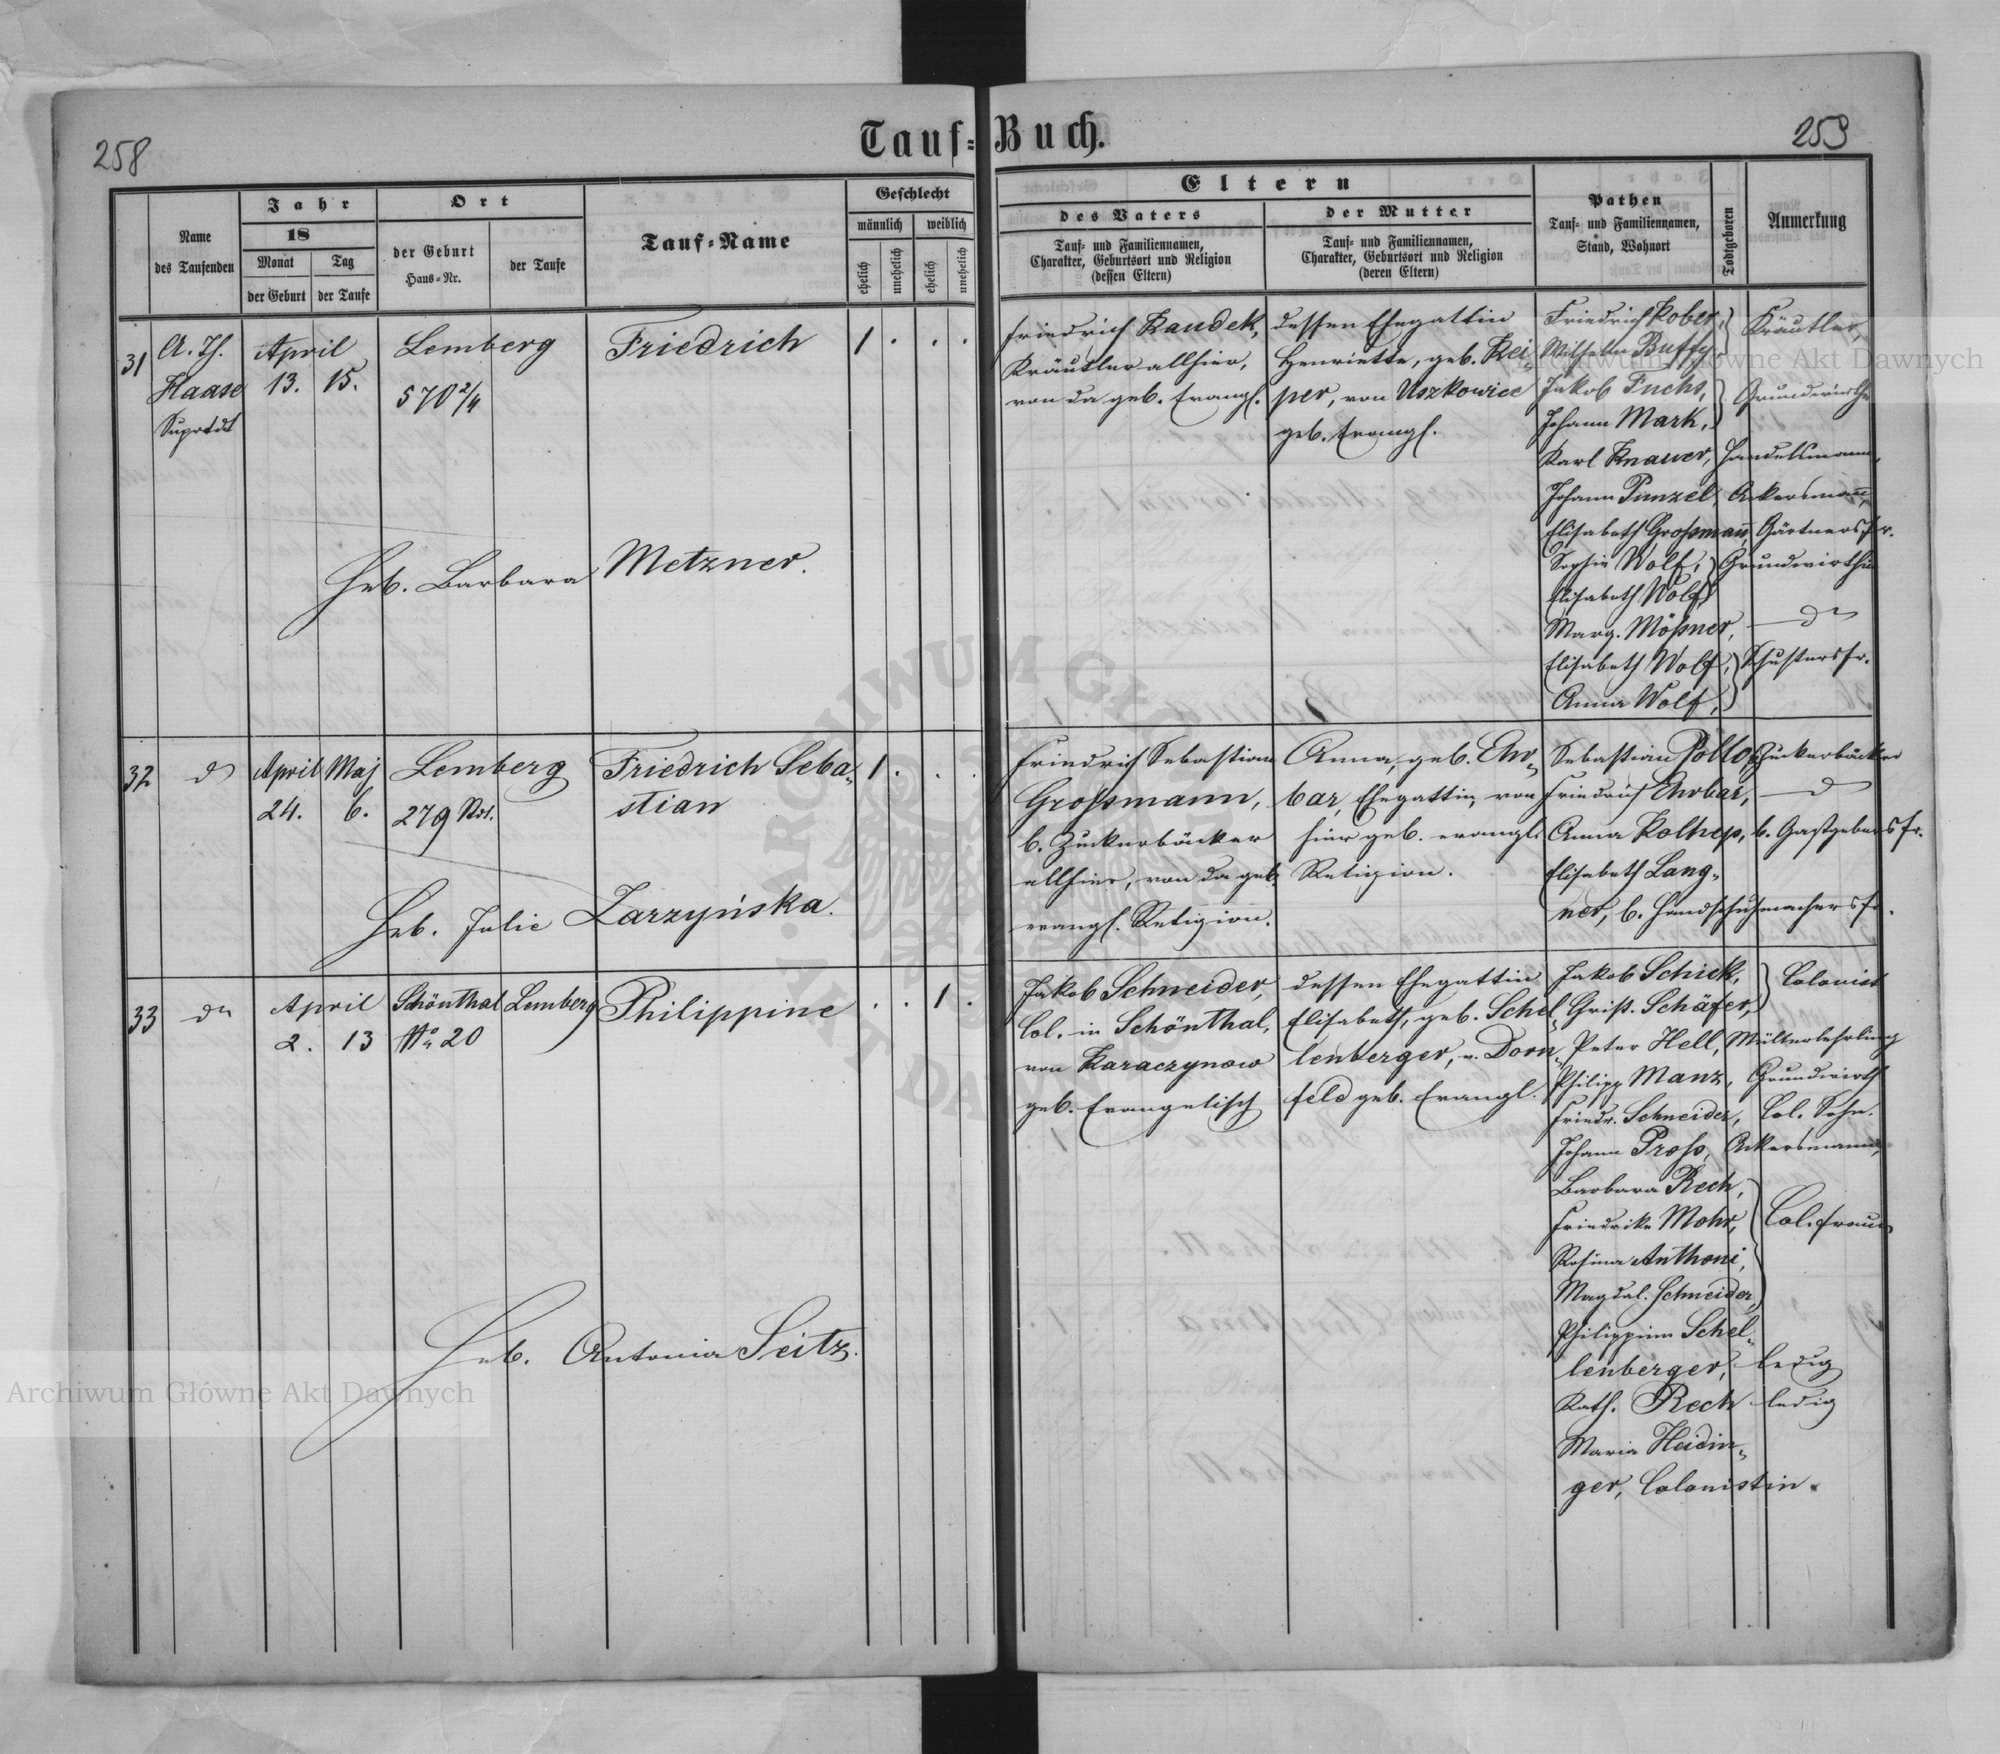 258
Tauf-Buch.
259
Name
des Taufenden
Jahr
18
Monat
der Geburt
Tag
der Taufe
Ort
der Geburt
Haus-Nr.
der Taufe
Tauf-Name
Geschlecht
männlich
weiblich
ehelich
unehelich
ehelich
unehelich
Eltern
des Vaters
Tauf- und Familiennamen,
Charakter, Geburtsort und Religion
(dessen Eltern)
der Mutter
Tauf- und Familiennamen,
Charakter, Geburtsort und Religion
(deren Eltern)
Pathen
Tauf- und Familiennamen,
Stand, Wohnort
Todtgeboren
Anmerkung
31
A. Th.
Haase
Suprtdt
April
13. 15.
Lemberg
570 2/4
Friedrich
1 . . .
Geb. Barbara Metzner.
Friedrich Kaudek,
Kräutler allhier,
von da geb. Evangl.
dessen Ehegattin
Henriette, geb. Kei-
per, von Uszkowice
geb. Evangl.
Friedrich Kober,
Wilhelm Buffy } Kräutler,
Jakob Fuchs,
Johann Mark, } Grundwirthe
Karl Knauer, Handelsmann,
Johann Punzel, Ackersmann,
Elisabeth Großmann, Gärtnersfr.
Sophie Wolf,
Elisabeth Wolf } Grundwirthin
Marg. Mößner, — do
Elisabeth Wolf,
Anna Wolf, } Schustersfr.
32
do
April Maj
24. 6.
Lemberg
279 Vrst.
Friedrich Seba-
stian
1 . . .
Geb. Julie Zarzyńska.
Friedrich Sebastian
Grossmann,
b. Zuckerbäcker
allhier, von da geb.
evangl. Religion.
Anna, geb. Ehr-
bar, Ehegattin, von
hier geb. evangl.
Religion.
Sebastian Pollo, Zuckerbäcker
Friedrich Ehrbar, — do
Anna Koltrep, b. Gastgebersfr.
Elisabeth Lang-
ner, b. Handschuhmachersfr.
33
do
April
2. 13
Schönthal
No 20
Lemberg
Philippine
. . 1 .
Geb. Antonia Seitz.
Jakob Schneider,
Col. in Schönthal,
von Karaczynow
geb. Evangelisch
dessen Ehegattin
Elisabeth, geb. Schel-
lenberger, v. Dorn-
feld geb. Evangl.
Jakob Schick,
Grist. Schäfer, } Colonist
Peter Hell, Müllerlehrling
Philipp Manz, Grundwirth
Friedr. Schneider, Col. Sohn.
Johann Pross, Ackersmann,
Barbara Rech,
Friedrike Mohr,
Rosina Anthoni,
Magdal. Schneider, } Col. frauen
Philippine Schel-
lenberger, ledig
Kath. Rech ledig
Maria Heidin-
ger, Colonistin.
Archiwum Główne Akt Dawnych
Archiwum Główne Akt Dawnych